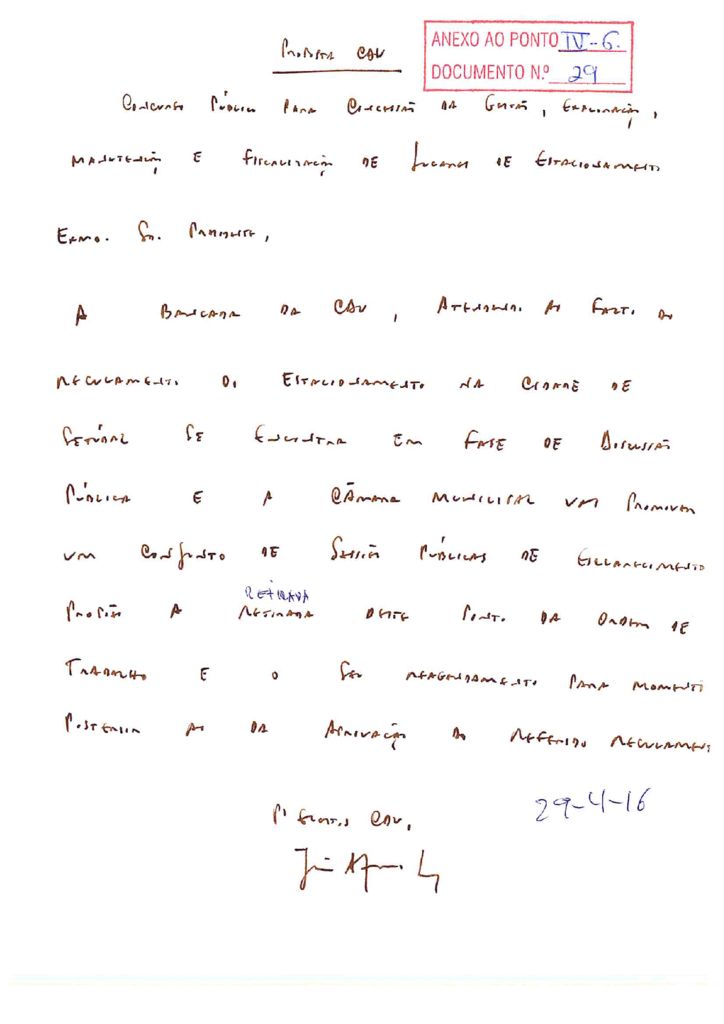 ANEXO AO PONTO IV-6.
DOCUMENTO N.º 29
Proposta CDU
Concurso Público para Concessão da Gestão, Exploração,
Manutenção e Fiscalização de Lugares de Estacionamento
Exmo. Sr. Presidente,
A Bancada da CDU, Atendendo ao Facto do
Regulamento do Estacionamento na Cidade de
Setúbal se Encontrar em Fase de Discussão
Pública e a Câmara Municipal vai Promover
um Conjunto de Sessões Públicas de Esclarecimento
RETIRADA
Propõe a Retirada deste Ponto da Ordem de
Trabalho e o seu Reagendamento para Momento
Posterior ao da Aprovação do Referido Regulamento
P' Eleitos CDU,
29-4-16